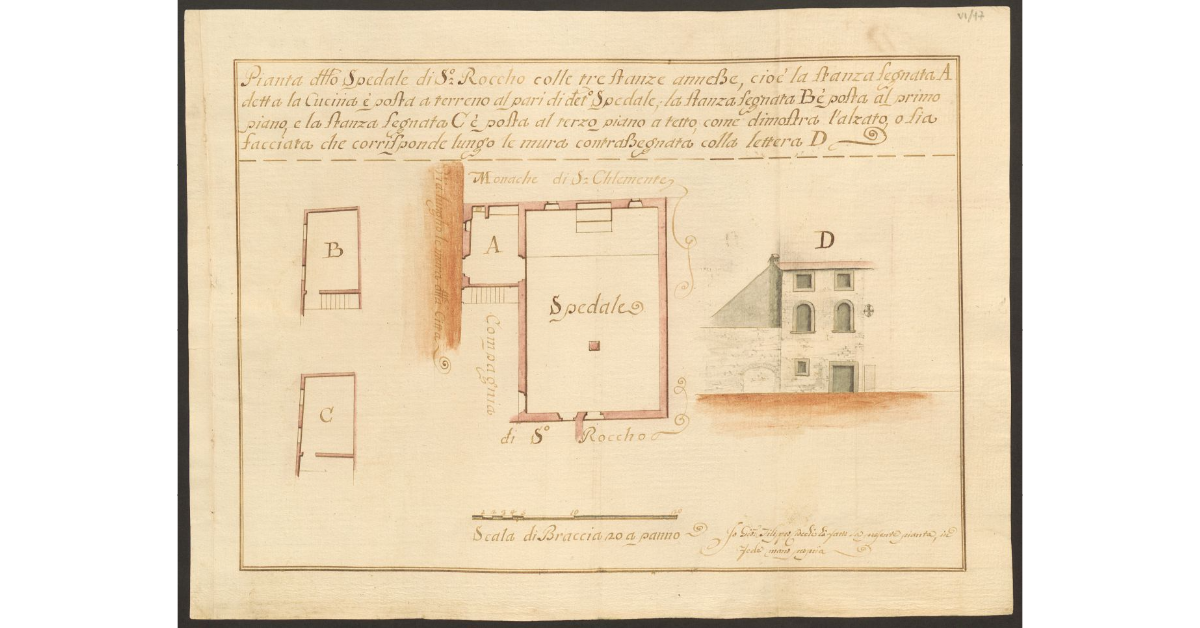 VI/17
Pianta dtto Spedale di So: Roccho colle tre stanze annesse, cioè la stanza segnata A
detta la Cucina è posta a terreno al pari di deto Spedale, la stanza segnata B è posta al primo
piano, e la stanza segnata C è posta al terzo piano a tetto, come dimostra l'alzato, o sia
facciata che corrisponde lungo le mura contrassegnata colla lettera D
Monache di S: Chlemente
B
A
D
Spedale
Compagnia
C
di So Roccho
Scala di Braccia 20 a panno
Io
fede mano propria